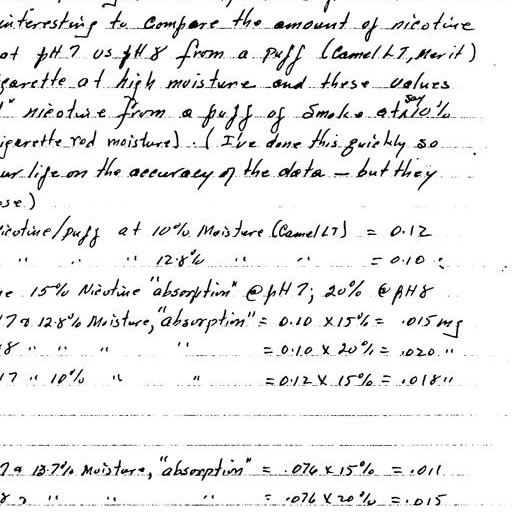 interesting to compare the amount of nicotine
at pH 7 vs pH 8 from a puff (Camel LT, Merit)
igarette at high moisture and these values
" nicotine from a puff of smoke at say 10%
igarette rod moisture). (I've done this quickly so
ur life on the accuracy of the data — but they
ose.)
icotine/puff at 10% Moisture (Camel LT) = 0.12
" " " 12.8% " " = 0.10
e 15% Nicotine "absorption" @ pH 7; 20% @ pH 8
7 @ 12.8% Moisture, "absorption" = 0.10 X 15% = .015 mg
8 " " " " = 0.10 X 20% = .020 "
7 " 10% " " = 0.12 X 15% = .018 "
7 @ 13.7% Moisture, "absorption" = .076 X 15% = .011
8 " " " = .076 X 20% = .015